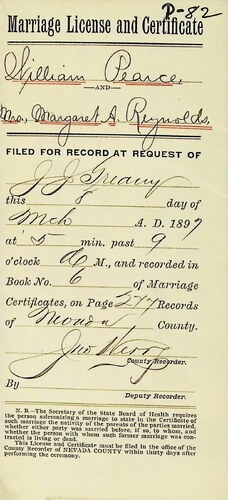 P-82
Marriage License and Certificate
William Pearce
AND
Mrs. Margaret A. Reynolds.
FILED FOR RECORD AT REQUEST OF
this 8 day of
Mch A. D. 1897
at 5 min. past 9
o'clock A M., and recorded in
Book No. 6 of Marriage
Certificates, on Page Records
of Nevada County.
County Recorder.
By
Deputy Recorder.
N. B.—The Secretary of the State Board of Health requires
the person solemnizing a marriage to state in the Certificate of
such marriage the nativity of the parents of the parties married,
whether either party was married before, if so, to whom, and
whether the person with whom such former marriage was con-
tracted is living or dead.
This License and Certificate must be filed in the office of the
County Recorder of NEVADA COUNTY within thirty days after
performing the ceremony.